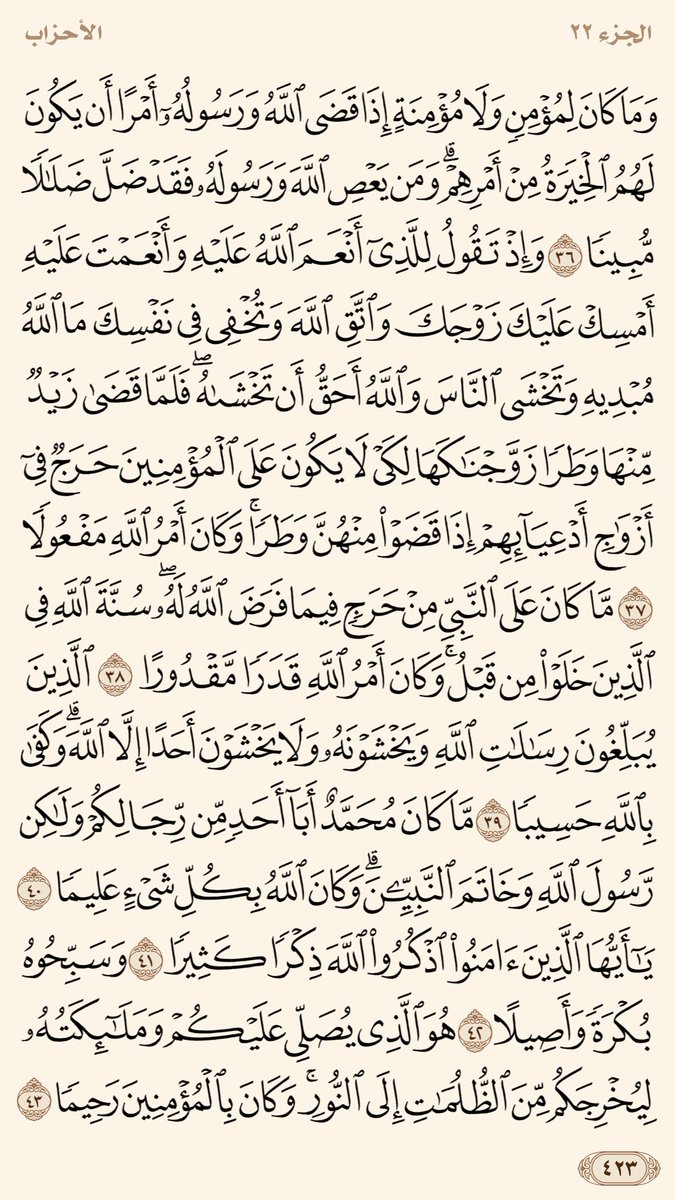 الجزء ٢٢ الأحزاب
وَمَا كَانَ لِمُؤْمِنٖ وَلَا مُؤْمِنَةٍ إِذَا قَضَى ٱللَّهُ وَرَسُولُهُۥٓ أَمْرًا أَن يَكُونَ
لَهُمُ ٱلْخِيَرَةُ مِنْ أَمْرِهِمْۗ وَمَن يَعْصِ ٱللَّهَ وَرَسُولَهُۥ فَقَدْ ضَلَّ ضَلَٰلٗا
مُّبِينٗا ٣٦ وَإِذْ تَقُولُ لِلَّذِيٓ أَنْعَمَ ٱللَّهُ عَلَيْهِ وَأَنْعَمْتَ عَلَيْهِ
أَمْسِكْ عَلَيْكَ زَوْجَكَ وَٱتَّقِ ٱللَّهَ وَتُخْفِي فِي نَفْسِكَ مَا ٱللَّهُ
مُبْدِيهِ وَتَخْشَى ٱلنَّاسَ وَٱللَّهُ أَحَقُّ أَن تَخْشَىٰهُۖ فَلَمَّا قَضَىٰ زَيْدٞ
مِّنْهَا وَطَرٗا زَوَّجْنَٰكَهَا لِكَيْ لَا يَكُونَ عَلَى ٱلْمُؤْمِنِينَ حَرَجٞ فِيٓ
أَزْوَٰجِ أَدْعِيَآئِهِمْ إِذَا قَضَوْاْ مِنْهُنَّ وَطَرٗاۚ وَكَانَ أَمْرُ ٱللَّهِ مَفْعُولٗا
٣٧ مَّا كَانَ عَلَى ٱلنَّبِيِّ مِنْ حَرَجٖ فِيمَا فَرَضَ ٱللَّهُ لَهُۥۖ سُنَّةَ ٱللَّهِ فِي
ٱلَّذِينَ خَلَوْاْ مِن قَبْلُۚ وَكَانَ أَمْرُ ٱللَّهِ قَدَرٗا مَّقْدُورًا ٣٨ ٱلَّذِينَ
يُبَلِّغُونَ رِسَٰلَٰتِ ٱللَّهِ وَيَخْشَوْنَهُۥ وَلَا يَخْشَوْنَ أَحَدًا إِلَّا ٱللَّهَۗ وَكَفَىٰ
بِٱللَّهِ حَسِيبٗا ٣٩ مَّا كَانَ مُحَمَّدٌ أَبَآ أَحَدٖ مِّن رِّجَالِكُمْ وَلَٰكِن
رَّسُولَ ٱللَّهِ وَخَاتَمَ ٱلنَّبِيِّـۧنَۗ وَكَانَ ٱللَّهُ بِكُلِّ شَيْءٍ عَلِيمٗا ٤٠
يَٰٓأَيُّهَا ٱلَّذِينَ ءَامَنُواْ ٱذْكُرُواْ ٱللَّهَ ذِكْرٗا كَثِيرٗا ٤١ وَسَبِّحُوهُ
بُكْرَةٗ وَأَصِيلًا ٤٢ هُوَ ٱلَّذِي يُصَلِّي عَلَيْكُمْ وَمَلَٰٓئِكَتُهُۥ
لِيُخْرِجَكُم مِّنَ ٱلظُّلُمَٰتِ إِلَى ٱلنُّورِۚ وَكَانَ بِٱلْمُؤْمِنِينَ رَحِيمٗا ٤٣
٤٢٣